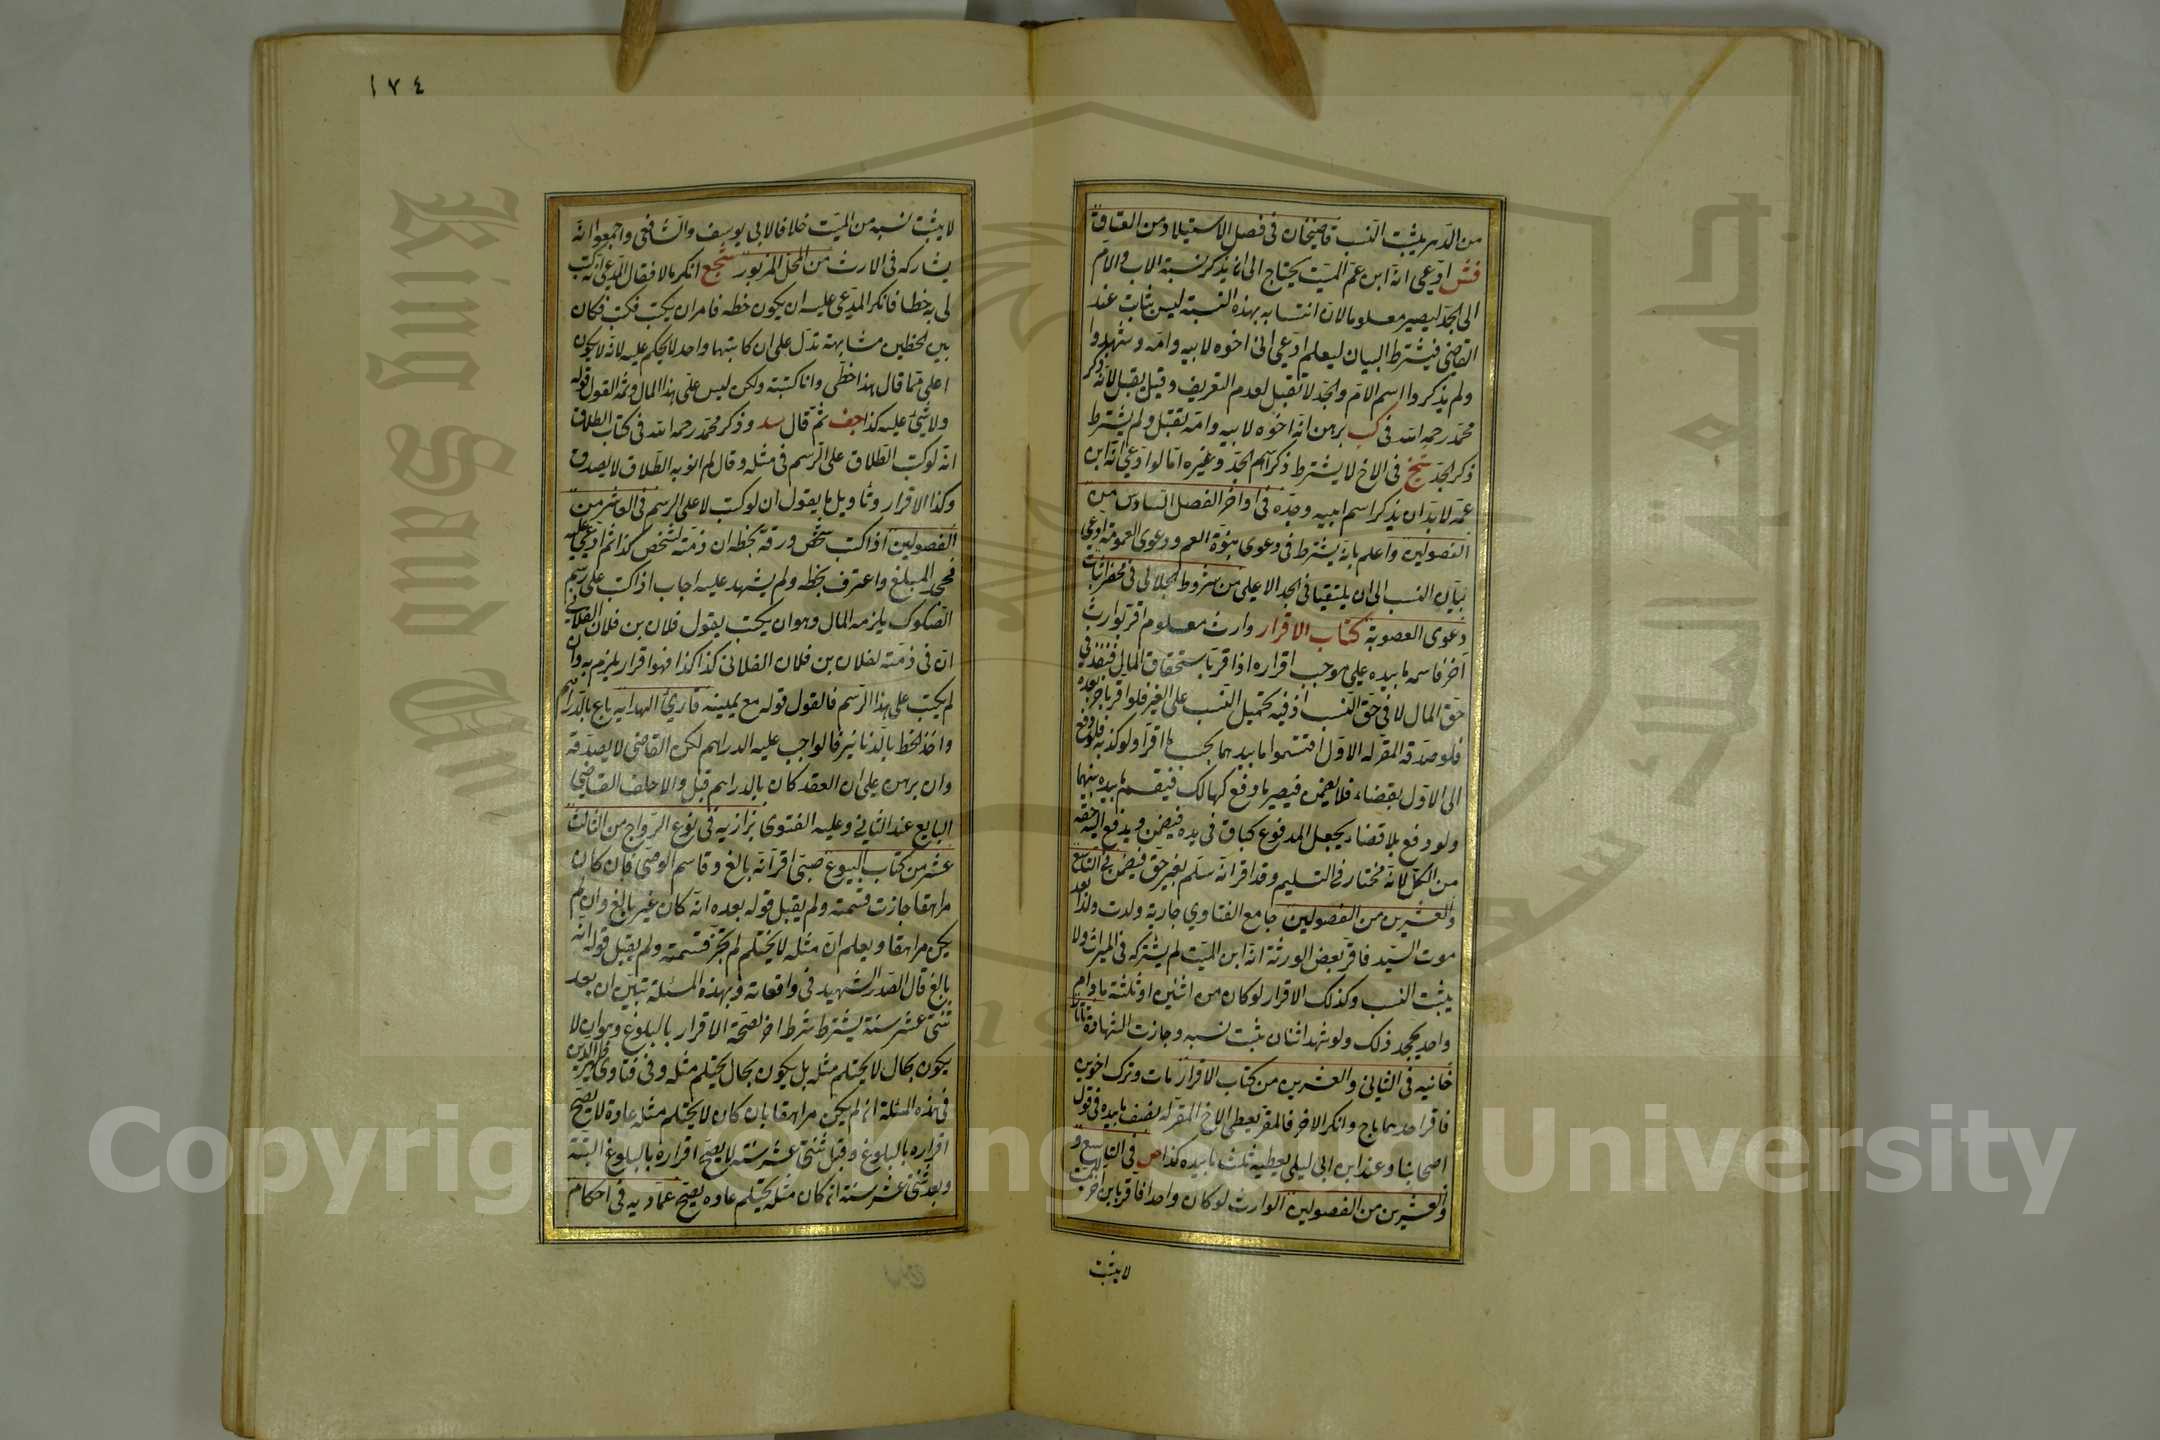 ١٧٤
من الدهر يثبت النسب قاضيخان في فصل الاستيلاد من العتاقة
فش ادعى انه ابن عم الميت يحتاج الى ان يذكر نسبة الاب والام
الى الجد ليصير معلوما لان انتسابه بهذه النسبة ليس بثابت عند
القاضي فيشترط البيان ليعلم ادعى اني اخوه لابيه وامه وشهدوا
ولم يذكروا اسم الام والجد لا تقبل لعدم التعريف وقيل يقبل لانه ذكر
محمد رحمه الله في كب برهن انه اخوه لابيه وامه تقبل ولم يشترط
ذكر الجد شخ في الاخ لا يشترط ذكر اسم الجد وغيره اما لو ادعى انه ابن
عمه لا بد ان يذكر اسم ابيه وجده في اواخر الفصل السادس من
الفصولين واعلم بانه يشترط في دعوى بنوة العم ودعوى العمومة
بيان النسب الى ان يلتقيا في الجد الاعلى من شروط الجلالي في محضر اثبات
دعوى العصوبة كتاب الاقرار وارث معلوم اقر بوارث
آخر قاسمه ما بيده على موجب اقراره اذا اقر باستحقاق المال فينفذ في
حق المال لا في حق النسب اذ فيه تحميل النسب على الغير فلو اقر باخر بعده
فلو صدقه المقر له الاول اقتسموا ما بيدهما بحسب ما اقر اولو كذبه فلو دفع
الى الاول بقضاء فلا يضمن فيصير ما دفع كهالك فيقسم ما بيده بينهما
ولو دفع بلا قضاء يجعل المدفوع كباق في يده فيضمن ويدفع اليه حقه
من الكل لانه مختار في التسليم وقد اقر انه سلم بغير حق فيضمن في التاسع
والعشرين من الفصولين جامع الفتاوي جارية ولدت ولدا بعد
موت السيد فاقر بعض الورثة انه ابن الميت لم يشركه في الميراث ولا
يثبت النسب وكذلك الاقرار لو كان من اثنين او ثلثة ما دام
واحد يجحد ذلك ولو شهد اثنان يثبت نسبه وجازت الشهادة تاتار
خانيه في الثاني والعشرين من كتاب الاقرار مات وترك اخوين
فاقر احدهما باخ وانكر الاخر فالمقر يعطي الاخ المقر له نصف ما بيده في قول
اصحابنا وعند ابن ابي ليلى يعطيه ثلث ما بيده كذا ص في التاسع
والعشرين من الفصولين الوارث لو كان واحدا فاقر بابن اخر
لا يثبت
لا يثبت نسبه من الميت خلافا لابي يوسف والشافعي واجمعوا انه
يشاركه في الارث من المحل المزبور شجع انكر مالا فقال المدعي انه كتب
لي به خطا فانكر المدعى عليه ان يكون خطه فامر ان يكتب فكتب فكان
بين الخطين مشابهة تدل على ان كاتبهما واحد لا يحكم عليه لانه لا يكون
اعلى مما قال هذا خطي وانا كتبته ولكن ليس علي هذا المال وثمه القول قوله
ولا شئ عليه كذا جف ثم قال سد وذكر محمد رحمه الله في كتاب الطلاق
انه لو كتب الطلاق على الرسم في مثله وقال لم انو به الطلاق لا يصدق
وكذا الاقرار وتأويل ما يقول ان لو كتب لا على الرسم في العاشر من
الفصولين اذا كتب شخص ورقة بخطه ان ذمته لشخص كذا ثم ادعى عليه
فجحد المبلغ واعترف بخطه ولم يشهد عليه اجاب اذا كتب على رسم
الصكوك يلزمه المال وهو ان يكتب يقول فلان بن فلان الفلاني
ان في ذمته لفلان بن فلان الفلاني كذا كذا فهو اقرار يلزم به وان
لم يكتب على هذا الرسم فالقول قوله مع يمينه قارئ الهدايه باع بالدراهم
واخذ الخط بالدنانير فالواجب عليه الدراهم لكن القاضي لا يصدقه
وان برهن على ان العقد كان بالدراهم قبل والا حلف القاضي
البايع عند الثاني وعليه الفتوى بزازيه في نوع الرواج من الثالث
عشر من كتاب البيوع صبي اقر انه بالغ وقاسم الوصي فان كان
مراهقا جازت قسمته ولم يقبل قوله بعده انه كان غير بالغ وان لم
يكن مراهقا ويعلم ان مثله لا يحتلم لم تجز قسمته ولم يقبل قوله انه
بالغ قال الصدر الشهيد في واقعاته وبهذه المسئلة تبين ان بعد
ثنتي عشر سنة يشترط شرط اخر لصحة الاقرار بالبلوغ وهو ان لا
يكون بحال لا يحتلم مثله بل يكون بحال يحتلم مثله وفي فتاوى ظهير الدين
في هذه المسئلة ان لم يكن مراهقا بان كان لا يحتلم مثله عادة لا يصح
اقراره بالبلوغ وقبل ثنتي عشر سنة لا يصح اقراره بالبلوغ البتة
وبعد ثنتي عشر سنة ان كان مثله يحتلم عاده يصح عماديه في احكام
Copyright © King Saud University
King Saud University
جامعة الملك سعود